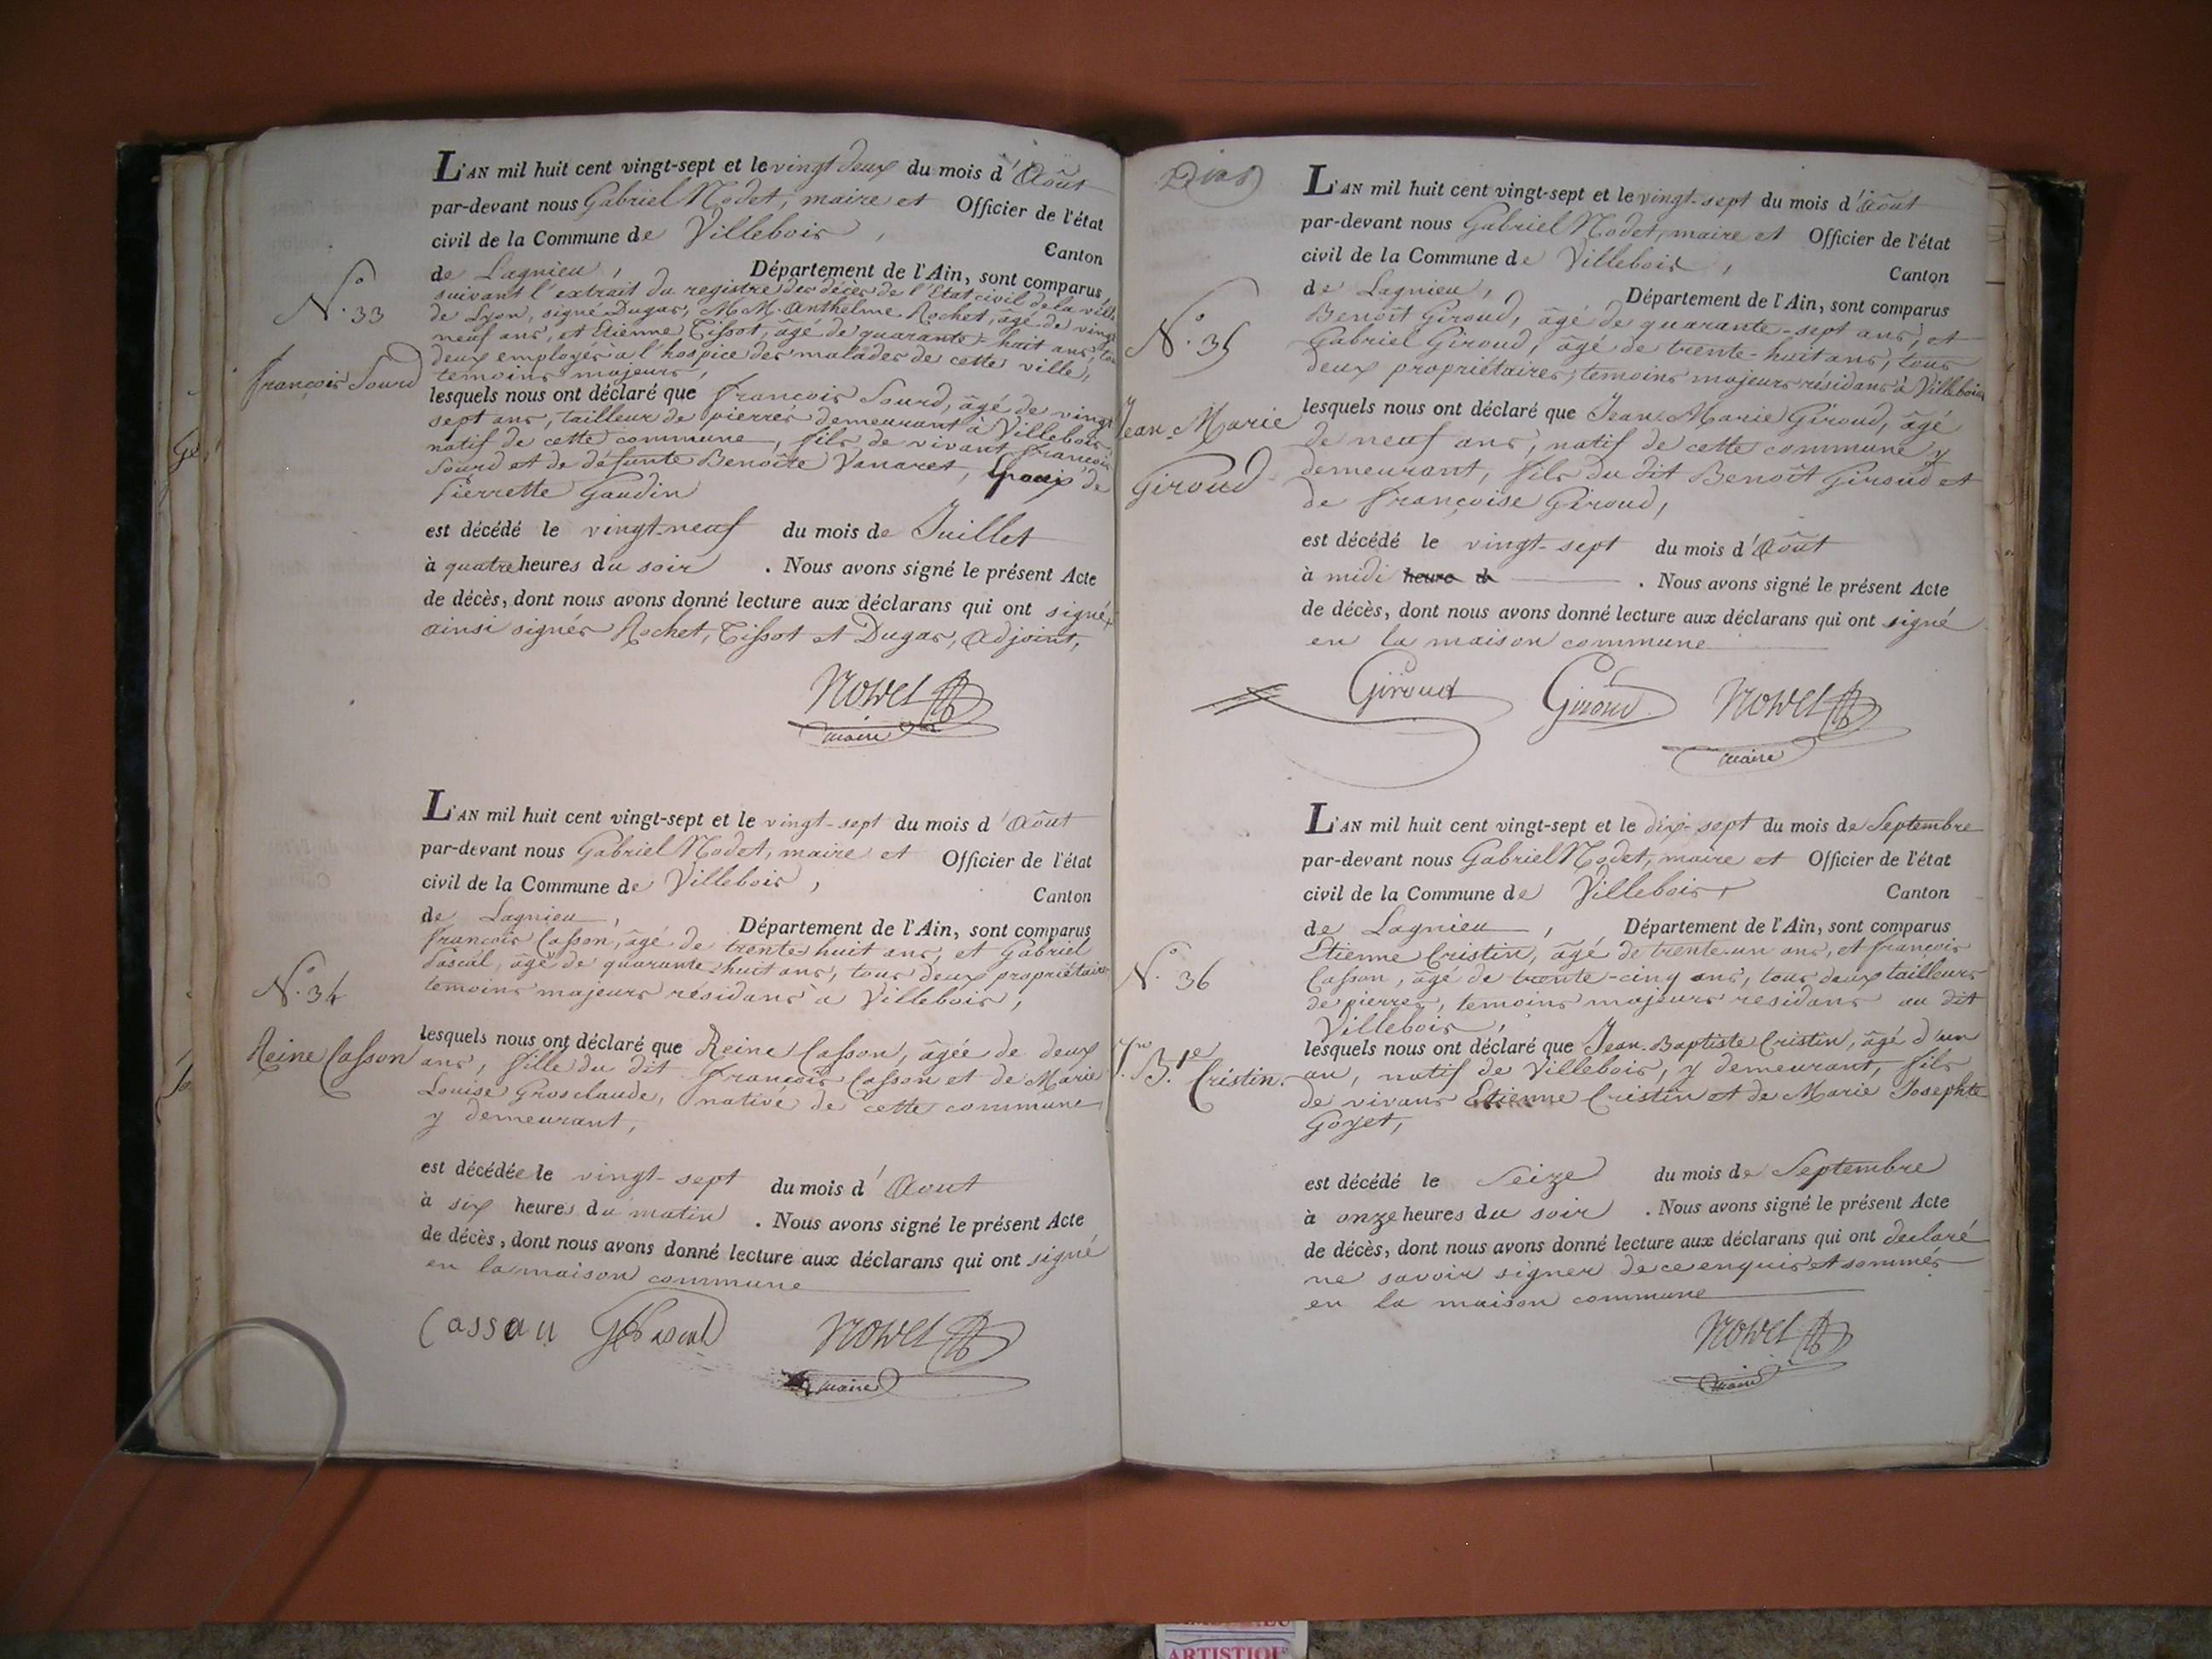 L'AN mil huit cent vingt-sept et le vingt deux du mois d'Août
par-devant nous Gabriel Nodet, maire et Officier de l'état
civil de la Commune de Villebois,
Canton
de Lagnieu, Département de l'Ain, sont comparus,
suivant l'extrait du registre des décès de l'Etat civil de la ville
de Lyon, signé Dugas, M M. Anthelme Rochet, âgé de vingt
neuf ans, et Etienne Tissot, âgé de quarante-huit ans, tous
deux employés à l'hospice des malades de cette ville,
temoins majeurs,
N.o 33
françois Sourd
lesquels nous ont déclaré que françois Sourd, âgé de vingt
sept ans, tailleur de pierres demeurant à Villebois
natif de cette commune, fils de vivant françois
Sourd et de défunte Benoîte Vanaret, Epoux de
Pierrette Gaudin
est décédé le vingt-neuf du mois de Juillet
à quatre heures du soir . Nous avons signé le présent Acte
de décès, dont nous avons donné lecture aux déclarans qui ont signé
ainsi signés Rochet, Tissot et Dugas, Adjoint,
Nodet
maire
L'AN mil huit cent vingt-sept et le vingt-sept du mois d'Août
par-devant nous Gabriel Nodet, maire et Officier de l'état
civil de la Commune de Villebois,
Canton
de Lagnieu, Département de l'Ain, sont comparus
françois Casson, âgé de trente huit ans, et Gabriel
Pascal, âgé de quarante-huit ans, tous deux propriétaires
temoins majeurs résidans à Villebois,
N.o 34
Reine Casson
lesquels nous ont déclaré que Reine Casson, âgée de deux
ans, fille du dit françois Casson et de Marie
Louise Grosclaude, native de cette commune
y demeurant,
est décédée le vingt-sept du mois d'Aout
à six heures du matin . Nous avons signé le présent Acte
de décès, dont nous avons donné lecture aux déclarans qui ont signé
en la maison commune
Cassou G Pascal Nodet
maire
L'AN mil huit cent vingt-sept et le vingt-sept du mois d'Août
par-devant nous Gabriel Nodet, maire et Officier de l'état
civil de la Commune de Villebois,
Canton
de Lagnieu, Département de l'Ain, sont comparus
Benoît Giroud, âgé de quarante-sept ans, et
Gabriel Giroud, âgé de trente-huit ans, tous
deux propriétaires, temoins majeurs résidans à Villebois
N.o 35
Jean-Marie
Giroud
lesquels nous ont déclaré que Jean-Marie Giroud, âgé
de neuf ans, natif de cette commune y
demeurant, fils du dit Benoît Giroud et
de françoise Giroud,
est décédé le vingt-sept du mois d'Août
à midi heure d . Nous avons signé le présent Acte
de décès, dont nous avons donné lecture aux déclarans qui ont signé
en la maison commune
Giroud Giroud Nodet
maire
L'AN mil huit cent vingt-sept et le dix-sept du mois de Septembre
par-devant nous Gabriel Nodet, maire et Officier de l'état
civil de la Commune de Villebois, Canton
de Lagnieu, Département de l'Ain, sont comparus
Etienne Cristin, âgé de trente-un ans, et françois
Casson, âgé de trente-cinq ans, tous deux tailleurs
de pierres, temoins majeurs residans au dit
Villebois,
N.o 36
Jn B.te Cristin
lesquels nous ont déclaré que Jean-Baptiste Cristin, âgé d'un
an, natif de Villebois, y demeurant, fils
de vivans Etienne Cristin et de Marie Josephte
Goyet,
est décédé le Seize du mois de Septembre
à onze heures du soir . Nous avons signé le présent Acte
de décès, dont nous avons donné lecture aux déclarans qui ont declaré
ne savoir signer de ce enquis et sommés
en la maison commune
Nodet
maire
ARTISTIQU